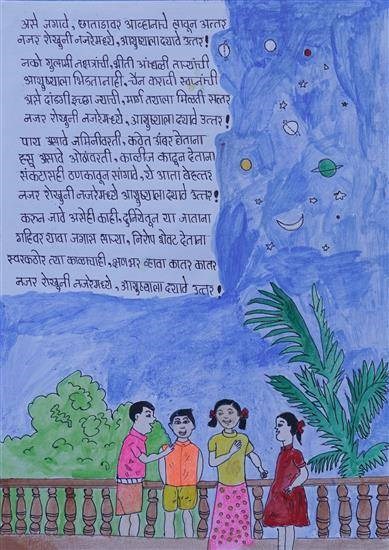 असे जगावे, छाताडावर आव्हानाचे लावून अत्तर
नजर रोखुनी नजरेमध्ये, आयुष्याला द्यावे उत्तर!
नको गुलामी नक्षत्रांची, भीती आंधळी ताऱ्यांची
आयुष्याला भिडतानाही, चैन करावी स्वप्नांची
असे दांडगी इच्छा ज्याची, मार्ग तयाला मिळती सत्तर
नजर रोखुनी नजरेमध्ये, आयुष्याला द्यावे उत्तर!
पाय असावे जमिनीवरती, कवेत अंबर घेताना
हसू असावे ओठांवरती, काळीज काढून देताना
संकटासही ठणकावून सांगावे, ये आता बेहत्तर
नजर रोखुनी नजरेमध्ये, आयुष्याला द्यावे उत्तर!
करून जावे असेही काही, दुनियेतून या जाताना
गहिवर यावा जगास साऱ्या, निरोप शेवट देताना
स्वर कठोर त्या काळाचाही, क्षणभर व्हावा कातर कातर
नजर रोखुनी नजरेमध्ये, आयुष्याला द्यावे उत्तर!